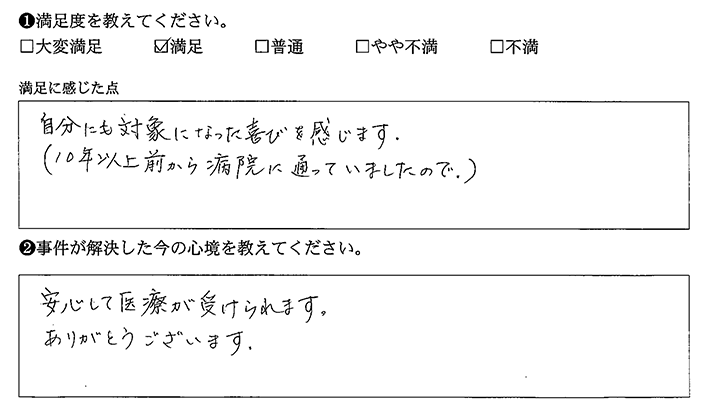 ❶満足度を教えてください。
□大変満足 ☑満足 □普通 □やや不満 □不満
満足に感じた点
自分にも対象になった喜びを感じます.
(10年以上前から病院に通っていましたので.)
❷事件が解決した今の心境を教えてください。
安心して医療が受けられます。
ありがとうございます.